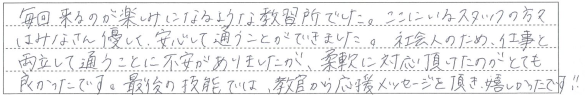 毎回来るのが楽しみになるような教習所でした。ここにいるスタッフの方々
はみなさん優しく、安心して通うことができました。社会人のため、仕事と
両立して通うことに不安がありましたが、柔軟に対応頂けたのがとても
良かったです。最後の技能では、教官から応援メッセージを頂き嬉しかったです!!